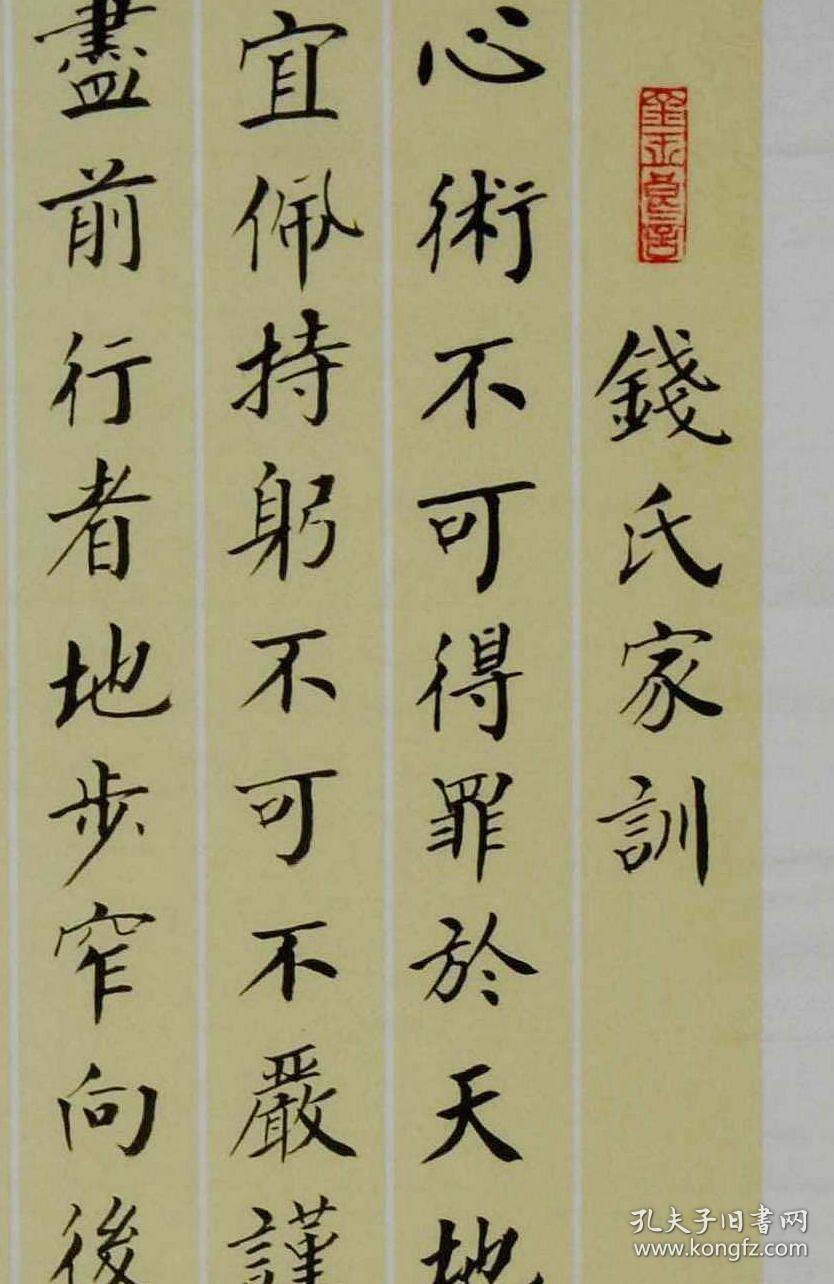 錢氏家訓
心術不可得罪於天地
宜佩持躬不可不嚴謹
盡前行者地步窄向後
孔夫子旧書网
www.kongfz.com